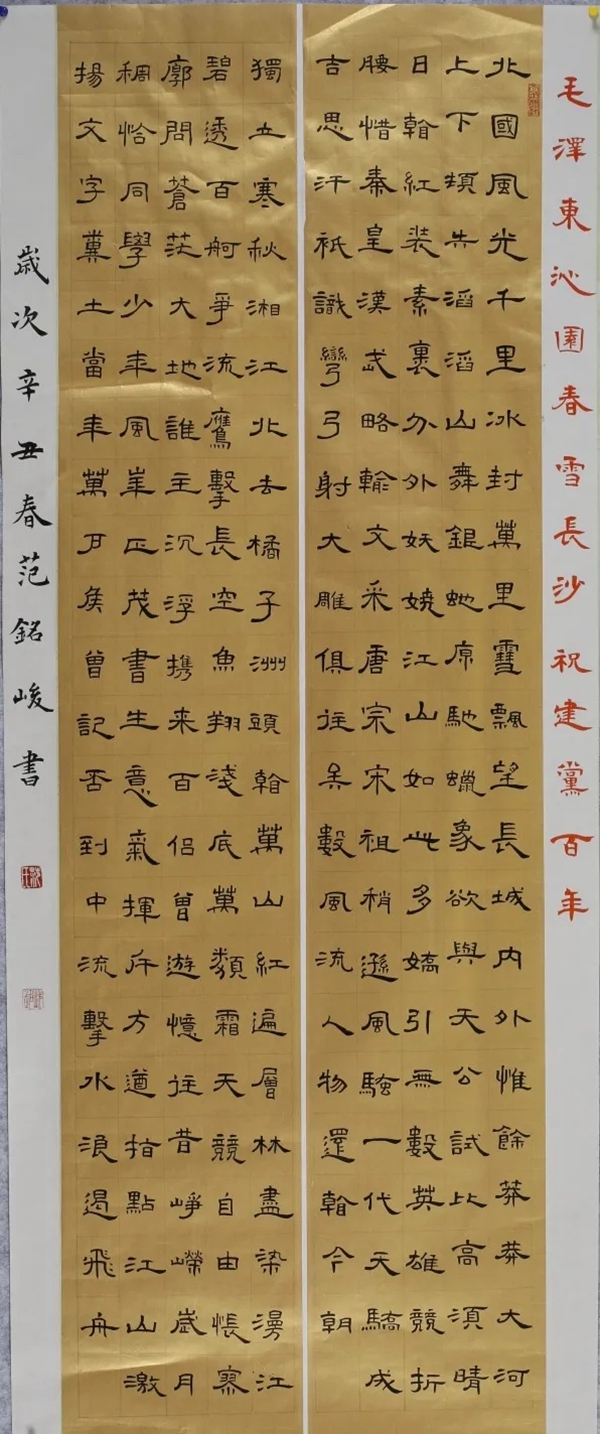 毛澤東沁園春雪長沙祝建黨百年
北國風光千里冰封萬里雪飄望長城內外惟餘莽莽大河
上下頓失滔滔山舞銀虵原馳蠟象欲與天公試比高須晴
日看紅裝素裹分外妖嬈江山如此多嬌引無數英雄競折
腰惜秦皇漢武略輸文采唐宗宋祖稍遜風騷一代天驕成
吉思汗衹識彎弓射大雕俱往矣數風流人物還看今朝
獨立寒秋湘江北去橘子洲頭看萬山紅遍層林盡染漫江
碧透百舸爭流鷹擊長空魚翔淺底萬類霜天競自由悵寥
廓問蒼茫大地誰主沉浮携来百侶曾遊憶往昔崢嶸歲月
稠恰同學少年風華正茂書生意氣揮斥方遒指點江山激
揚文字糞土當年萬户侯曾記否到中流擊水浪遏飛舟
歲次辛丑春范銘峻書